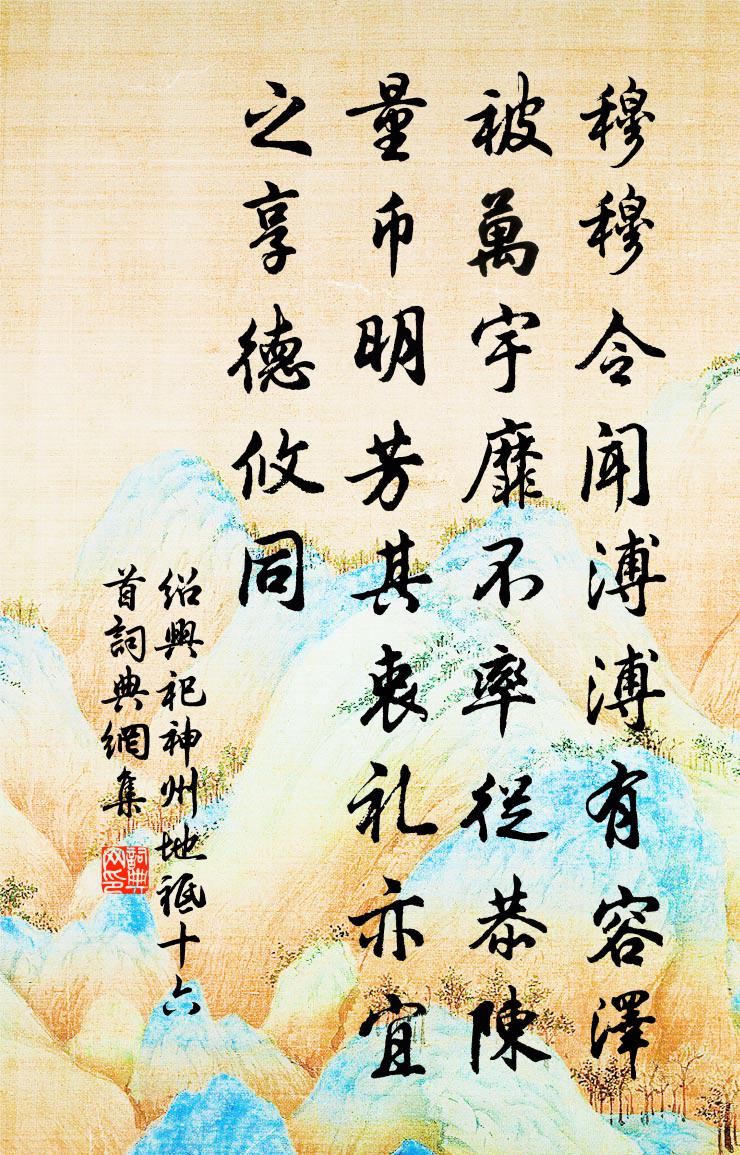 穆穆令闻溥溥有容澤
被萬宇靡不率從恭陳
量币明芳其衷礼亦宜
之享德攸同
绍興祀神州地祗十六
首詞典網集
詞典